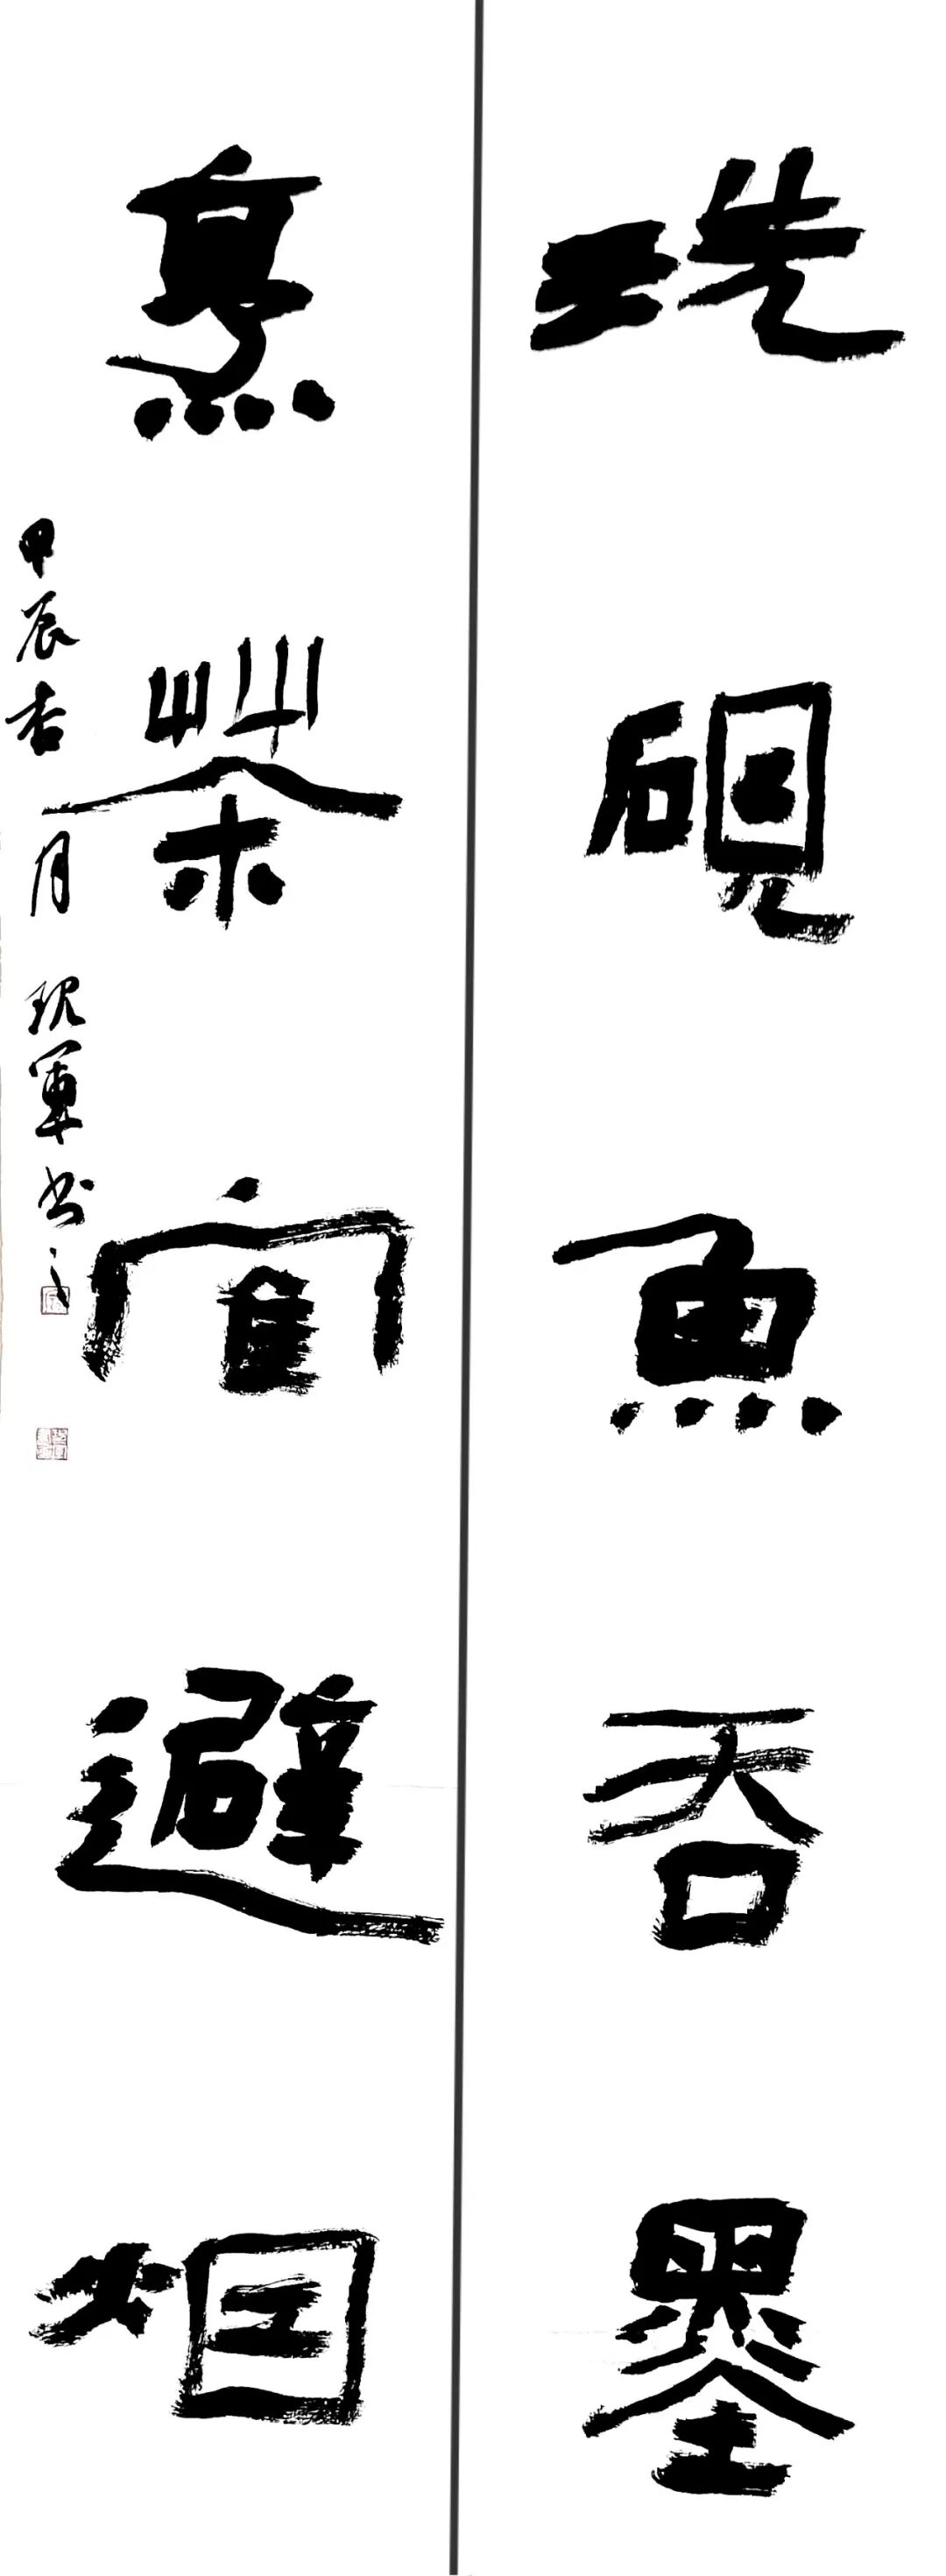 洗硯魚吞墨
烹茶寉避烟
甲辰杏月 现軍书之